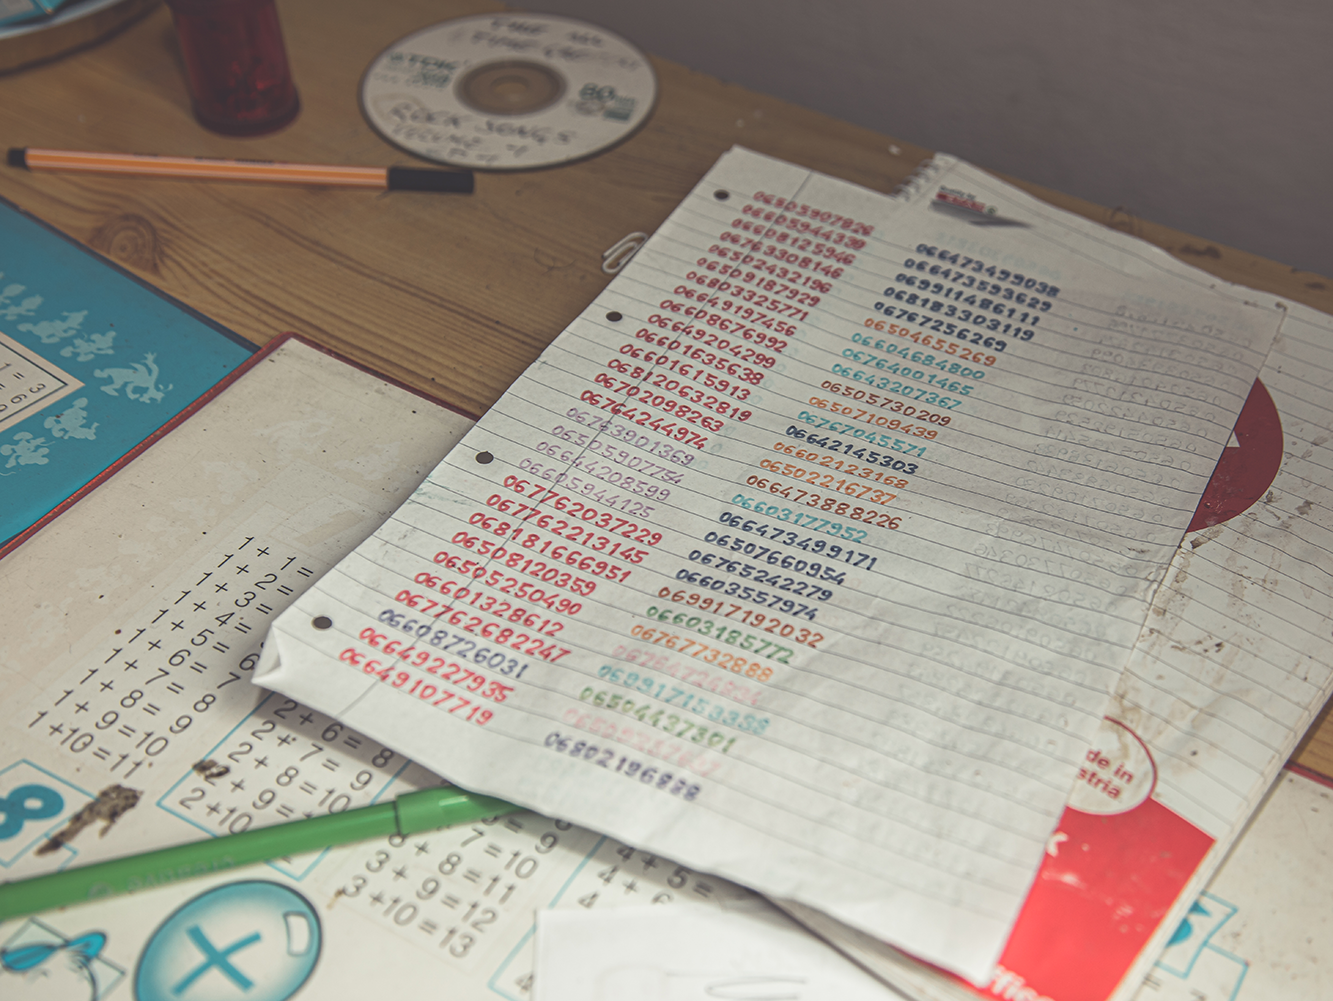 CHEF MIX
TDK
80
ROCK SONGS
06505907826
06605944339
06608125946
06763308146
06502432196
06509187929
06803325771
06649197456
06608676992
06649204299
06601635638
06601615913
068120632819
06702098263
06764244974
06763901369
06644208599
06605944125
067762037229
067762213145
068181666951
06508120359
06505250490
06601328612
067762682247
06608726031
06649227935
06649107719
066473499038
066473593629
069911486111
068183303119
06767256269
06504655269
06604684800
06764001465
06643207367
06505730209
06507109439
06767045571
06642145303
06602123168
06502216737
066473888226
06603177952
066473499171
06507660954
06765242279
06603557974
069917192032
06603185772
06767732888
069917153358
06504437301
06802196828
de in
stria
ffice
1 + 1 =
1 + 2 =
1 + 3 =
1 + 4 =
1 + 5 =
1 + 6 = 6
1 + 7 = 7
1 + 8 = 8
1 + 9 = 9
1 + 9 = 10
1 +10 = 11
2 + 6 = 8
2 + 7 = 9
2 + 8 = 10
2 + 9 =
2 +10
= 9
+ 7 = 10
3 + 8 = 11
3 + 9 = 12
3 +10 = 13
4 + 5 =
4 + 6
8